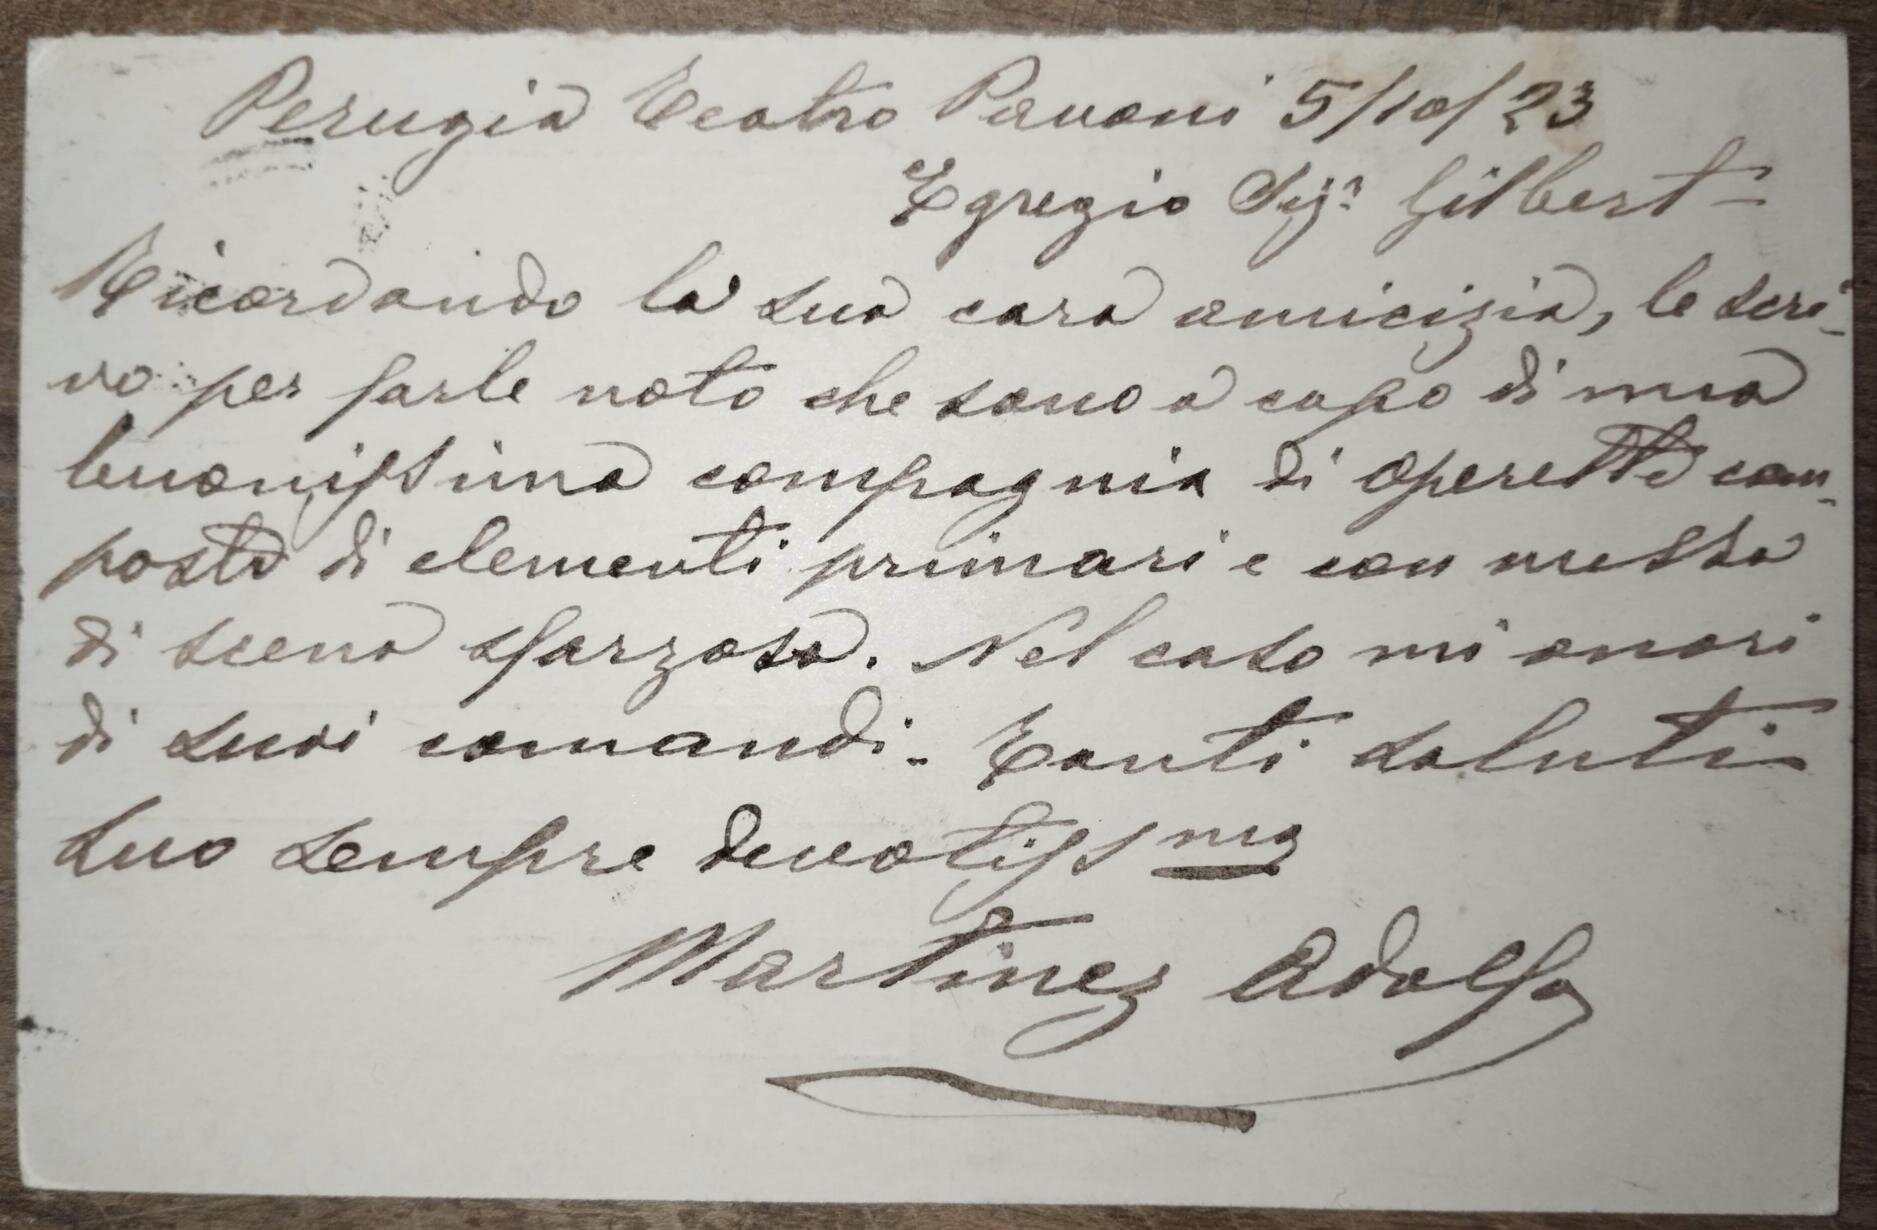 Perugia Teatro Pavoni 5/10/23
Egregio Sigr Gilbert -
Ricordando la sua cara amicizia, le scri-
vo per farle noto che sono a capo di una
buonissima compagnia di operette com-
posta di elementi primari e con messa
di scena sfarzosa. Nel caso mi onori
di suoi comandi. Tanti saluti
suo sempre devotissmo
Martinez Adolfo